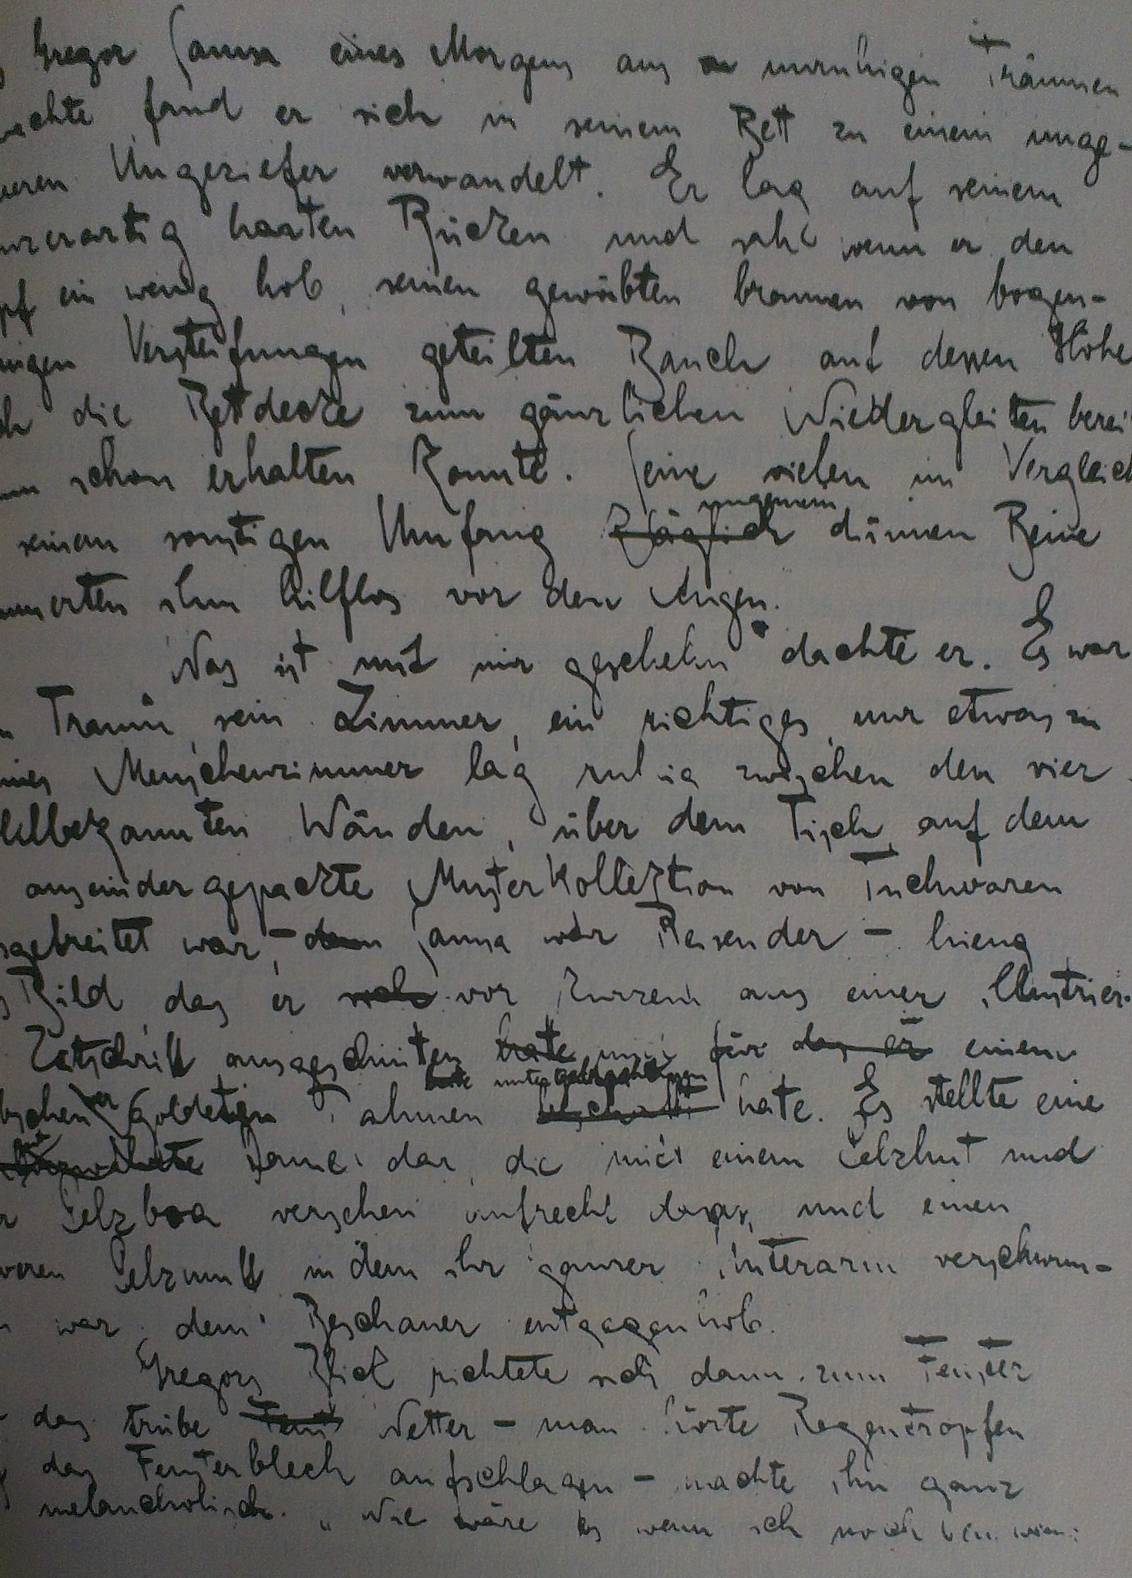 Gregor Samsa eines Morgens aus unruhigen Träumen
wachte fand er sich in seinem Bett zu einem unge-
ueren Ungeziefer verwandelt. Er lag auf seinem
nzerartig harten Rücken und sah wenn er den
pf ein wenig hob, seinen gewölbten braunen von bogen-
migen Versteifungen geteilten Bauch auf dessen Höhe
ch die Bettdecke zum gänzlichen Niedergleiten bereit
um schon erhalten konnte. Seine vielen im Vergleich
seinem sonstigen Umfang kläglich dünnen Beine
mmerten ihm hilflos vor den Augen.
Was ist mit mir geschehn" dachte er. Es war
n Traum, sein Zimmer, ein richtiges, nur etwas zu
ines Menschenzimmer lag ruhig zwischen den vier
hlbekannten Wänden, über dem Tisch, auf dem
auseindergepackte Musterkollektion von Tuchwaren
sgebreitet war, – denn Samsa war Reisender – hieng
s Bild, das er vor Kurzem aus einer illustrier-
Zeitschrift ausgeschnitten hatte und für das er einem
bschen goldeten Rahmen untergebracht hate. Es stellte eine
Dame dar, die mit einem Pelzhut und
r Pelzboa versehen aufrecht dasas, und einen
weren Pelzmuff in dem ihr ganzer Unterarm verschwun-
n war, dem Beschauer entgegenhob.
Gregors Blick richtete sich dann zum Fenster
das trübe Wetter – man hörte Regentropfen
das Fensterblech aufschlagen – machte ihn ganz
melancholisch. „Wie wäre es wenn ich noch ein wenig